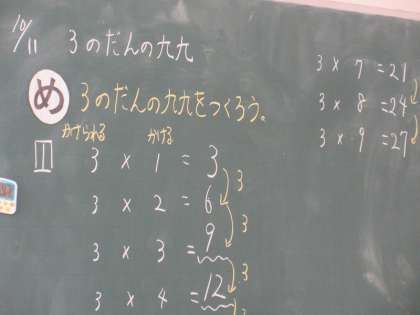 10/11 3のだんの九九
め 3のだんの九九をつくろう。
かけられる かける
1 3 × 1 = 3
3
3 × 2 = 6
3
3 × 3 = 9
3
3 × 4 = 12
3 × 7 = 21
3 × 8 = 24
3 × 9 = 27